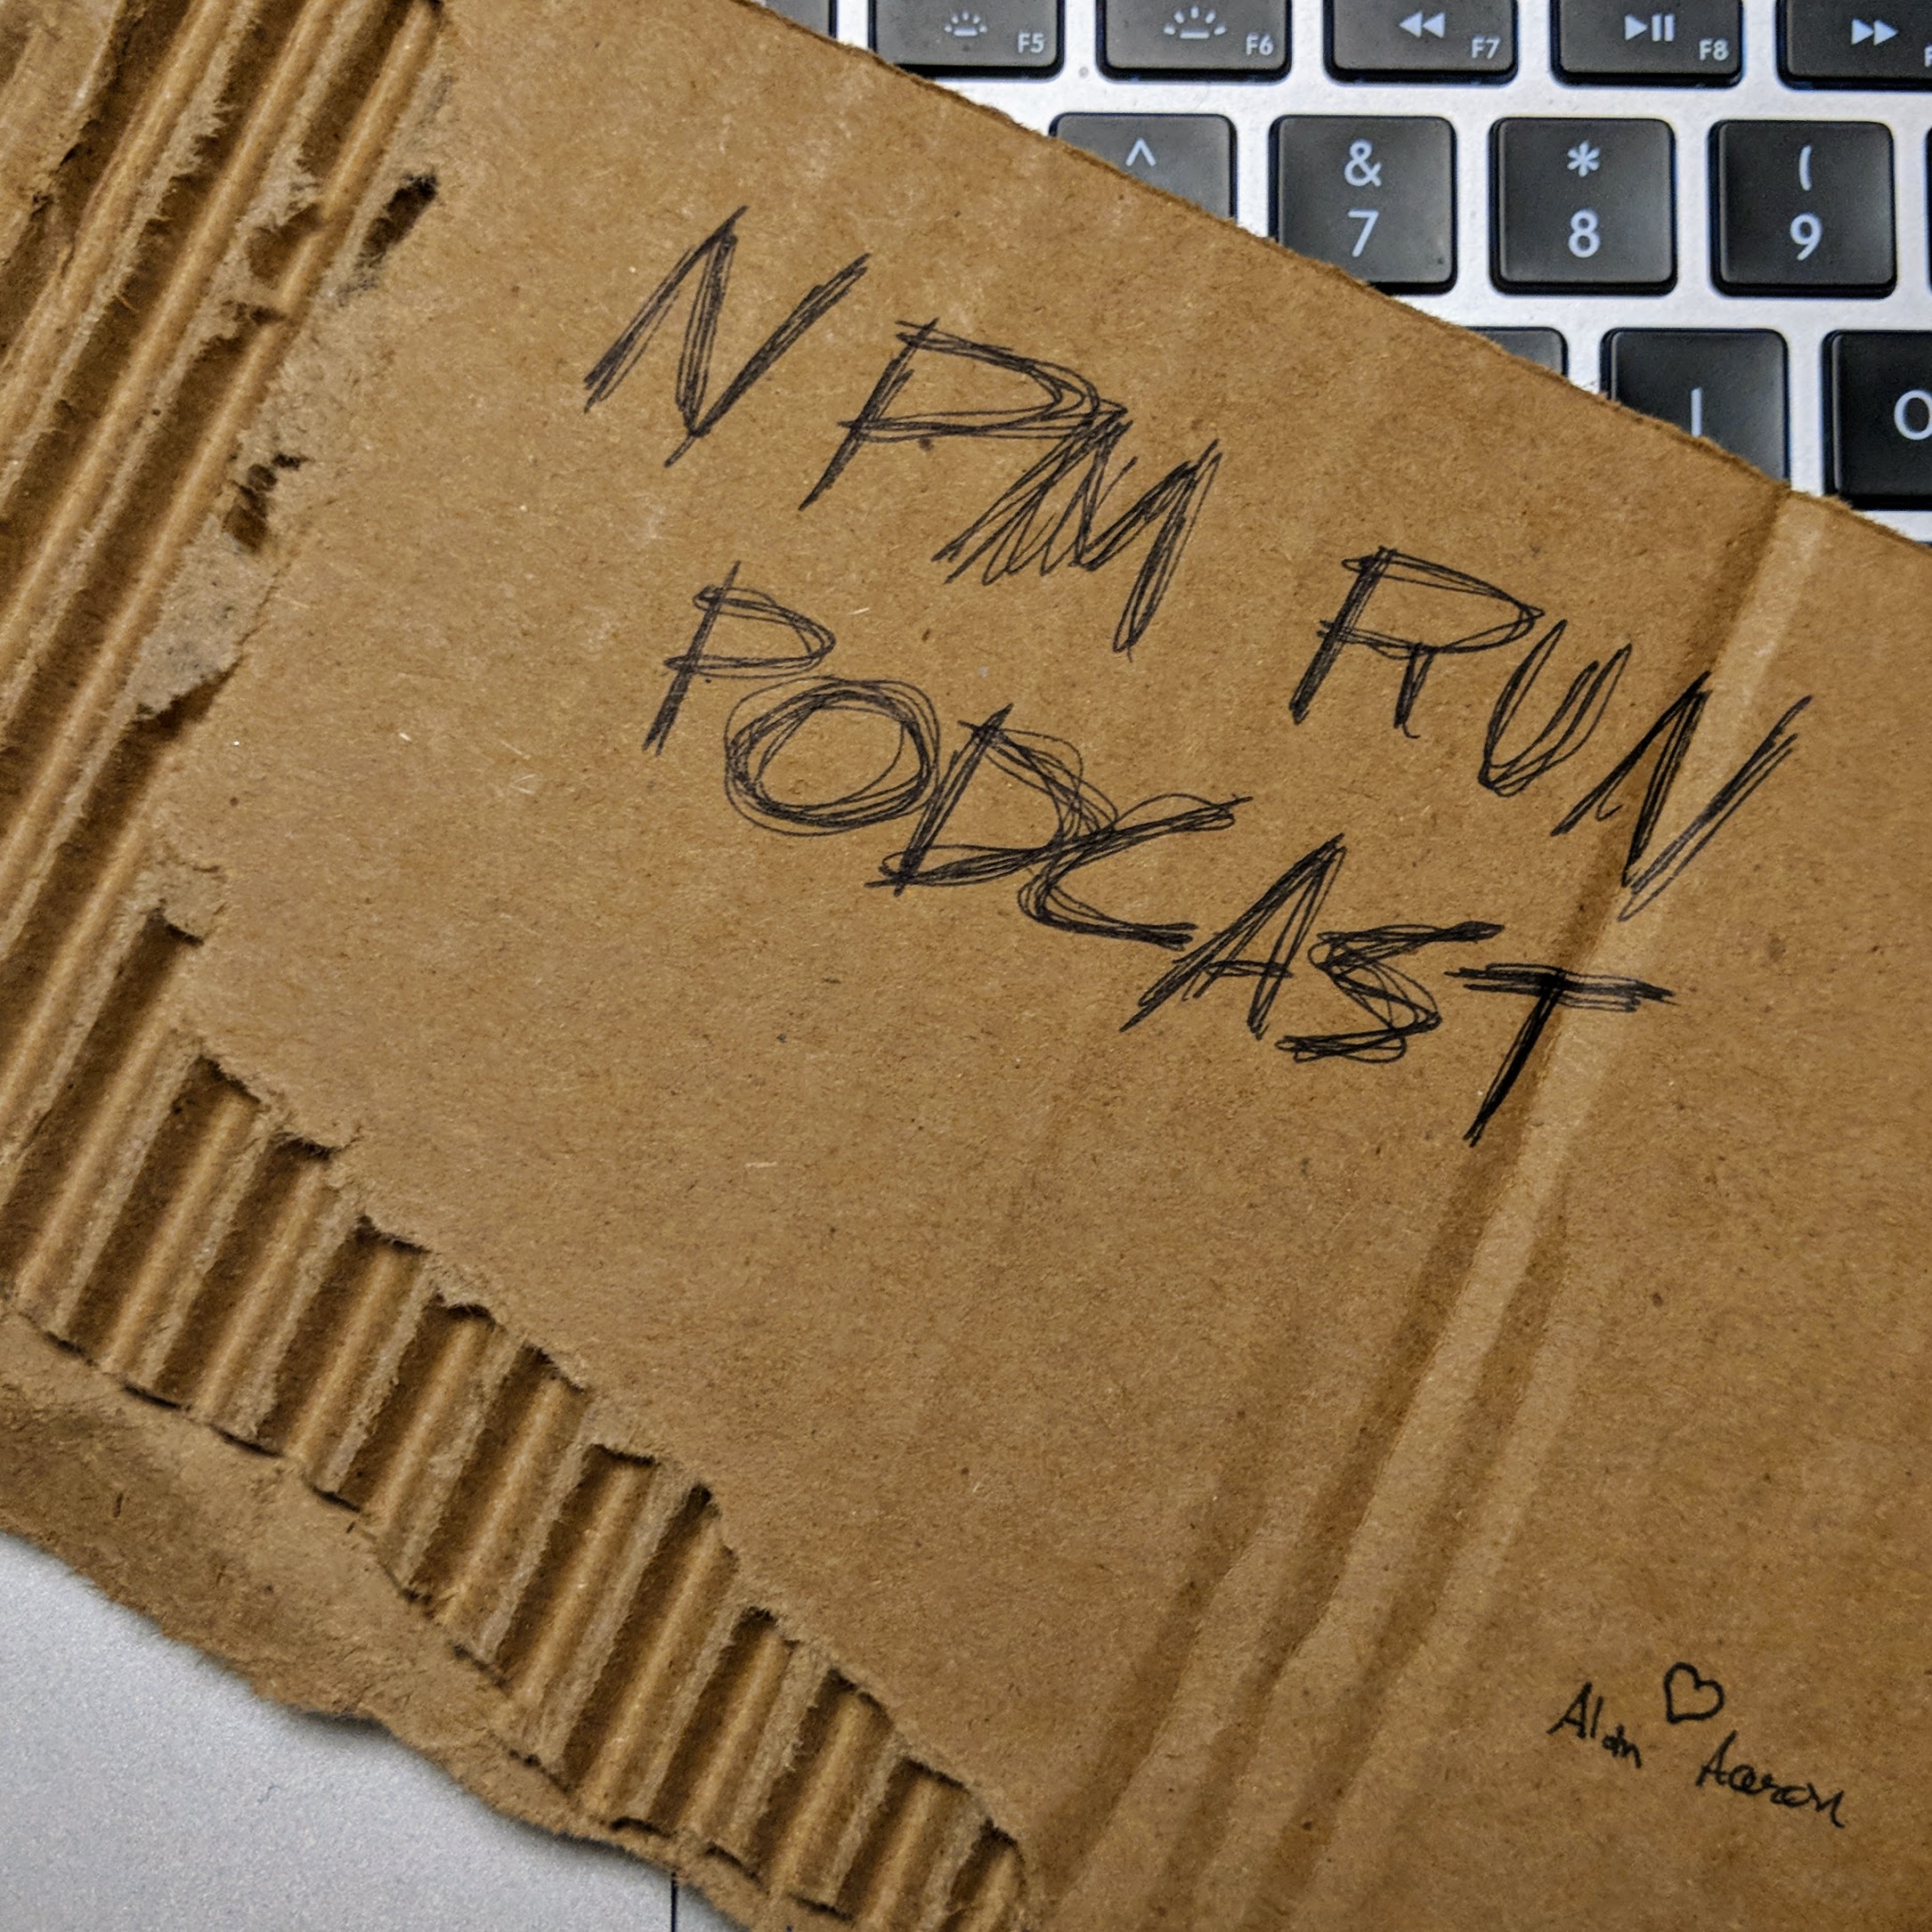 F5 F6 F7 F8
^ & * (
7 8 9
I O
NPM RUN
PODCAST
Alan ♡ Aaron